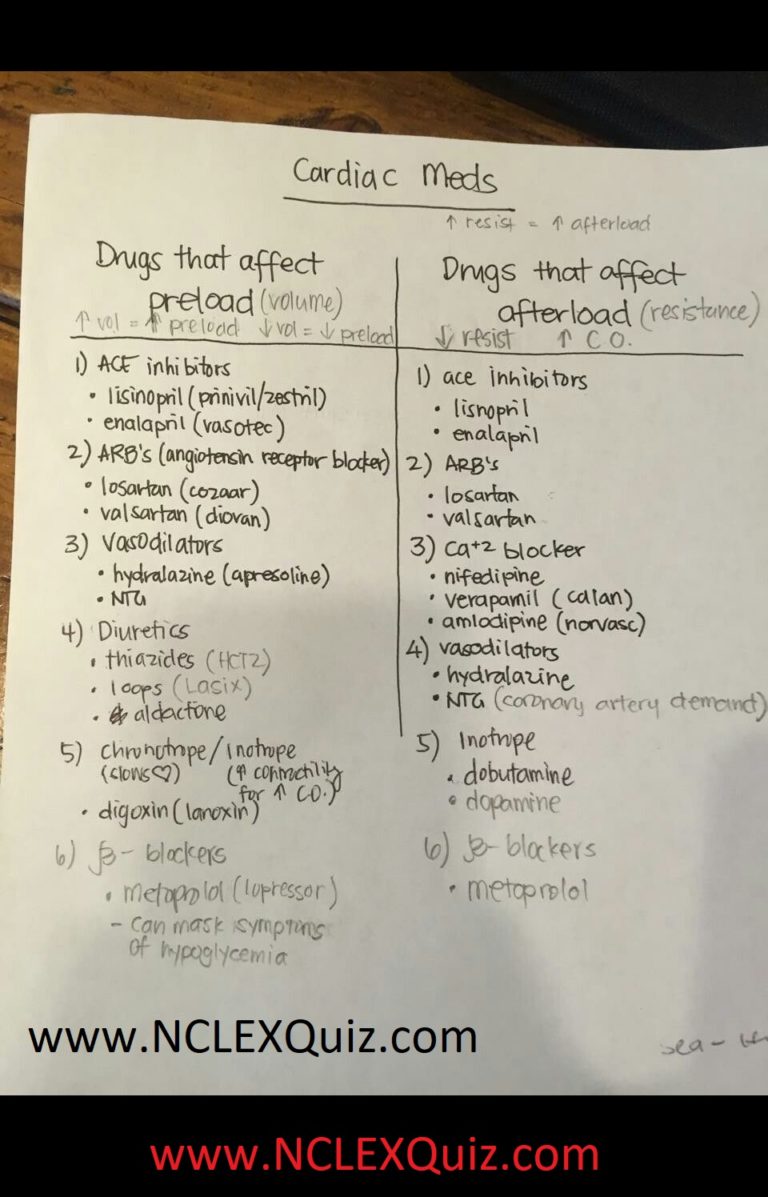 Cardiac Meds
↑ resist = ↑ afterload
Drugs that affect
preload (volume)
↑ vol = ↑ preload ↓ vol = ↓ preload
1) ACE inhibitors
• lisinopril (prinivil/zestril)
• enalapril (vasotec)
2) ARB's (angiotensin receptor blocker)
• losartan (cozaar)
• valsartan (diovan)
3) Vasodilators
• hydralazine (apresoline)
• NTG
4) Diuretics
• thiazides (HCTZ)
• loops (Lasix)
• aldactone
5) chronotrope/inotrope
(slows ♡) (↑ contractility
for ↑ CO.)
• digoxin (lanoxin)
6) β-blockers
• metoprolol (lopressor)
- can mask symptoms
of hypoglycemia
Drugs that affect
afterload (resistance)
↓ resist ↑ C.O.
1) ace inhibitors
• lisnopril
• enalapril
2) ARB's
• losartan
• valsartan
3) Ca+2 blocker
• nifedipine
• verapamil (calan)
• amlodipine (norvasc)
4) vasodilators
• hydralazine
• NTG (coronary artery demand)
5) Inotrope
• dobutamine
• dopamine
6) β-blockers
• metoprolol
www.NCLEXQuiz.com
www.NCLEXQuiz.com